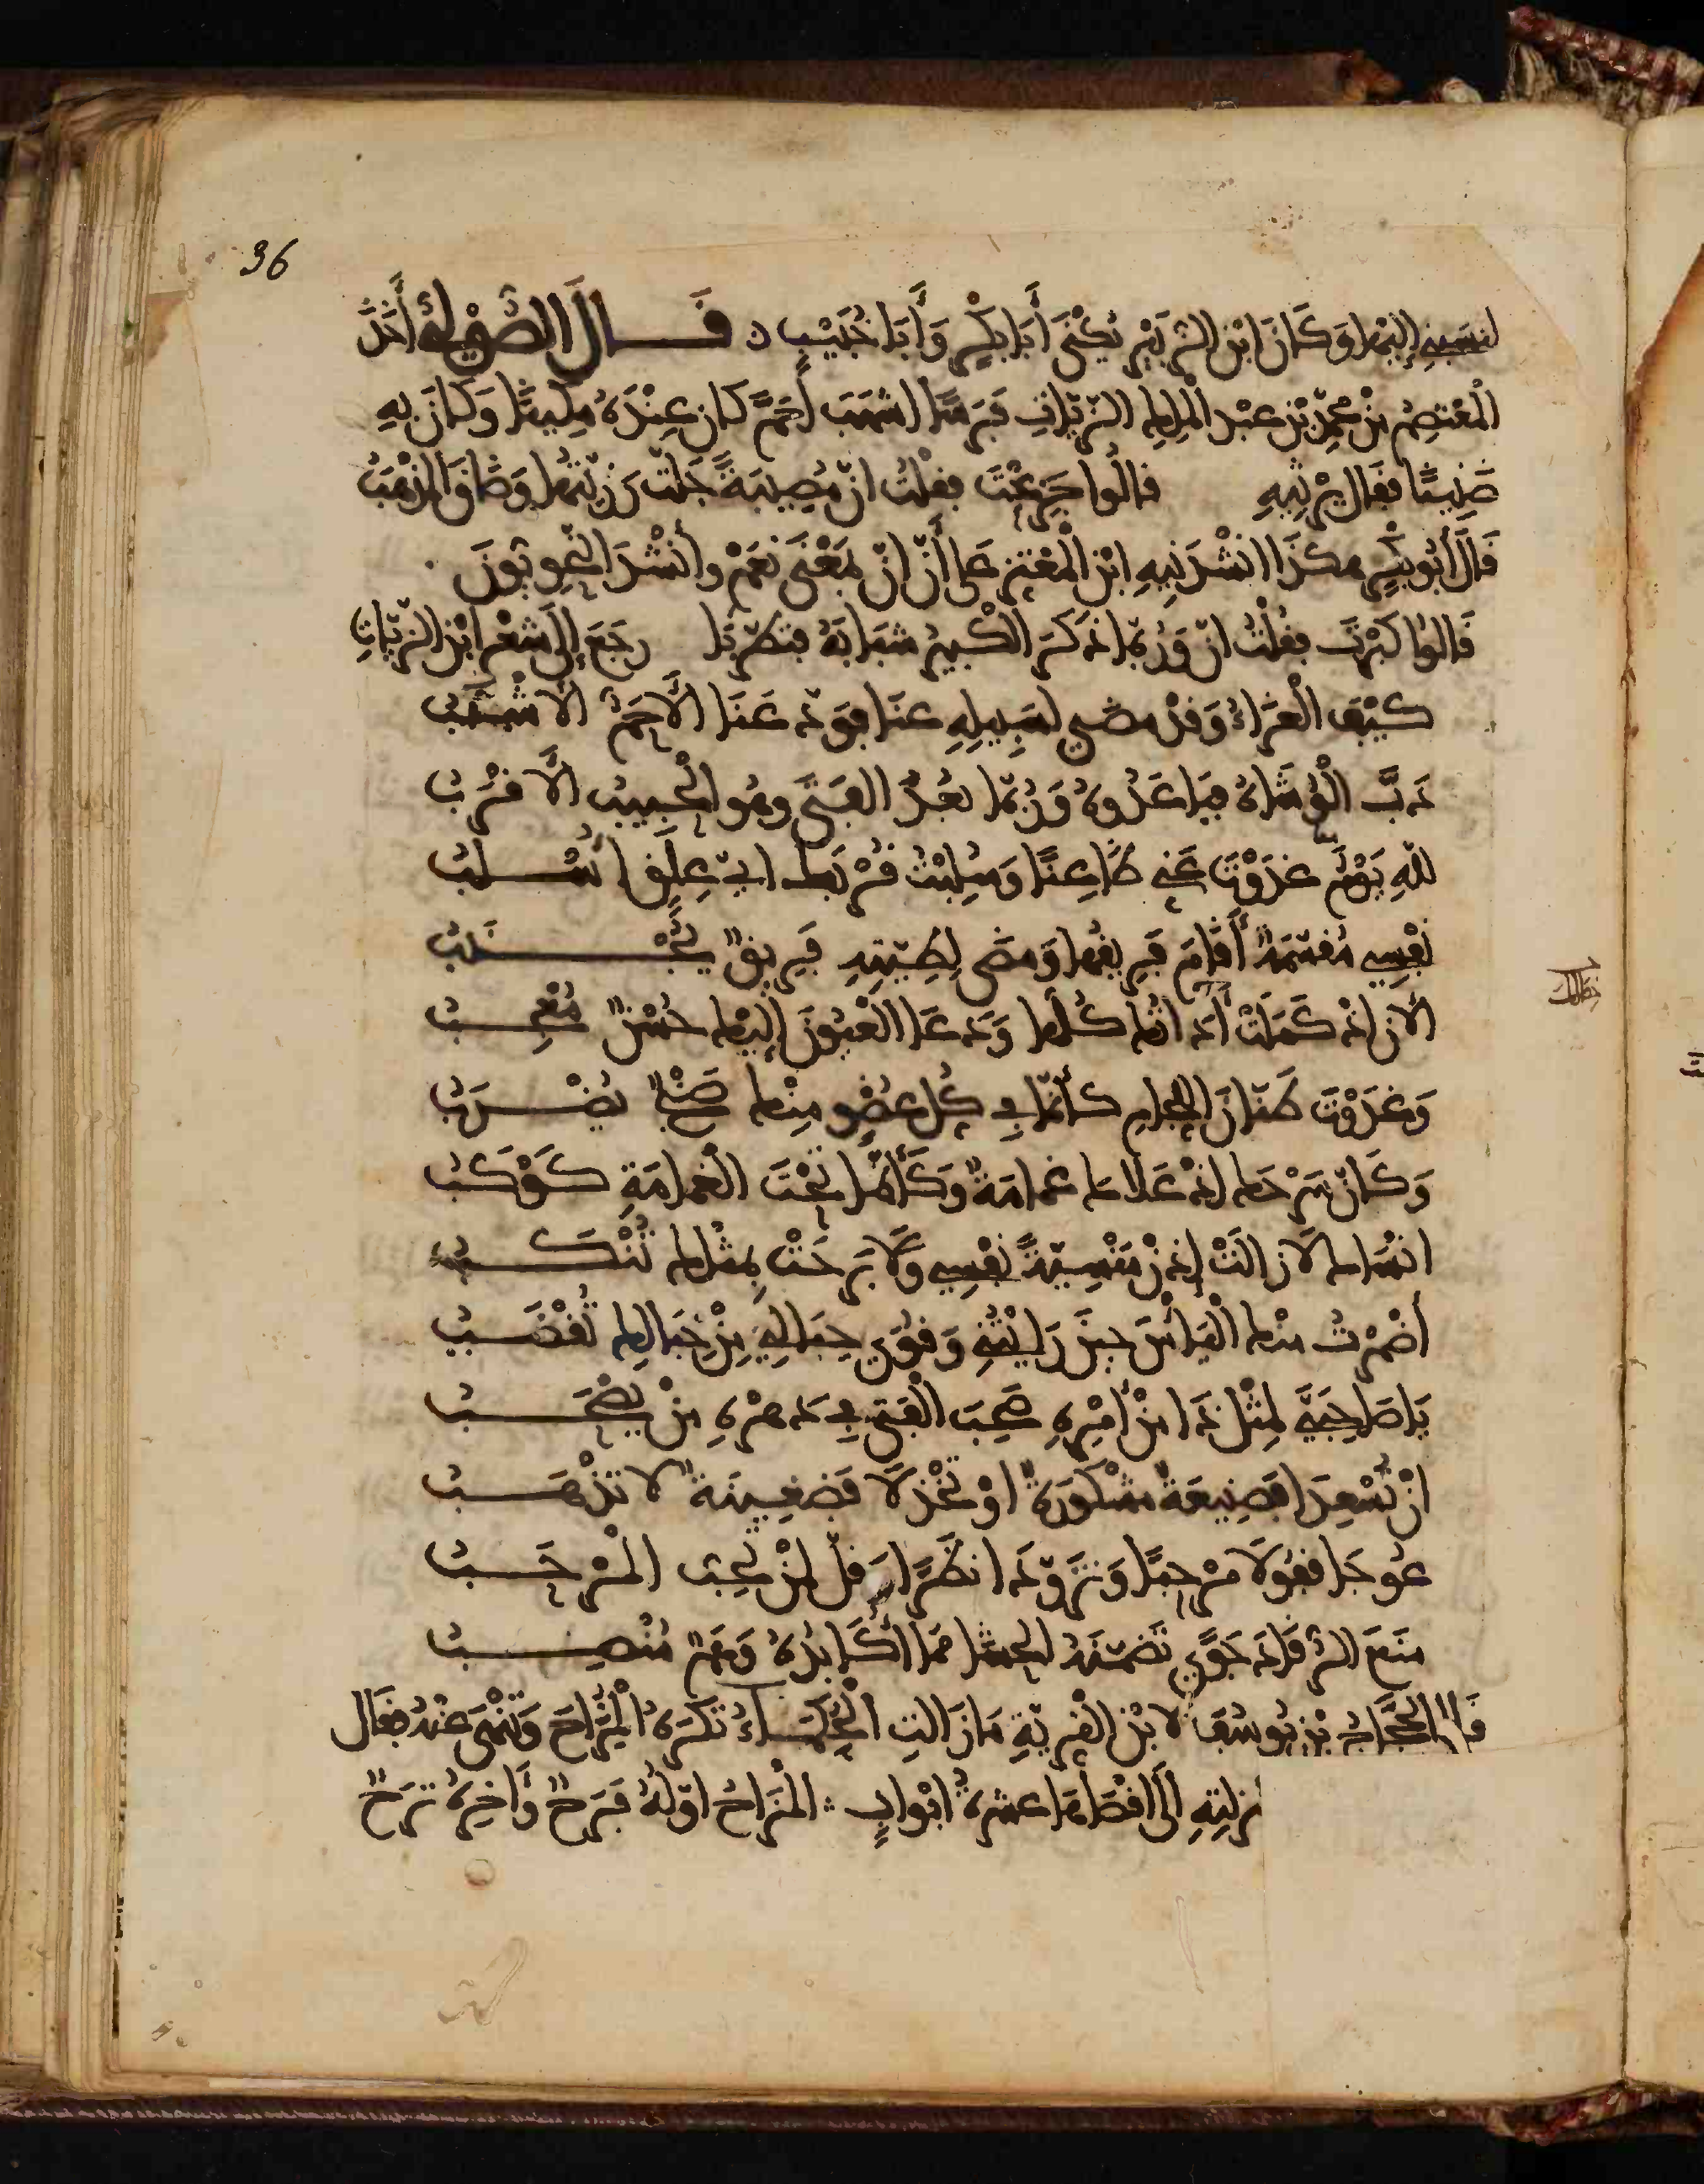 36
لنسبه إليها وَكَانَ ابْن الزبَيْر يُكْنَى أَبَا بَكْرٍ وَأَبَا خُبَيْبٍ قَــالَ الصُّوْلِيُّ أَخَذَ
الْمُعْتَصِمُ مِنْ مُحَمَّدِ بْنِ عَبْدِ الْمَلِكِ الزيّاتِ فَرَسًا اشهَبَ أَحَمَّ كان عِنْدَهُ مَكِينًا وَكَانَ بِهِ
ضَنِينًا فقَال يَرْثِيهِ قالُوا جَزِعْتَ فقلْتُ انّ مُصِيبَةً جَلّتْ رَزِيّتُهَا وَضَاقَ الْمَذْهَبُ
قَالَ أَبُو بَكْرٍ هكَذَا انْشَدَنِيهِ ابْن الْمُعْتز عَلى أَنّ انّ بِمَعْنَى نَعَمْ وأَنْشَدَ النّحْوِيّونَ
قَالوا كَبِرْتَ فقُلْتُ انّ وَرُبّمَا ذَكَرَ الْكَبِيرُ شَبَابَهُ فتَطَرّبَا رجَعَ إلَى شعْرِ ابْن الزيّاتِ
كَيْفَ الْعَزَاءُ وَقدْ مضَى لسَبِيلِهِ عنَا فوَدّعَنَا الأَحَمُّ الأشْهَبُ
دَبَّ الْوُشَاةُ فبَاعَدُوهُ وَرُبّمَا بَعُدَ الفَتَى وهُو الْحَبِيبُ الأَقرَبُ
للّهِ يَوْمَ غدَوْتَ عَنِّي ظَاعِنًا وَسُلِبْتُ قُرْبَكَ اي عِلقٍ أُسْلَبُ
نَفْسِي مُقسّمَةٌ أَقَامَ فَرِيقُهَا وَمضَى لِطِيّتِهِ فَرِيقٌ يُجْنَبُ
الآنَ اذ كَمَلَتْ أَدَاتُكَ كُلّهَا وَدَعَا الْعُيُونَ إلَيْكَ حُسْنٌ مُعْجِبُ
وَغَدَوْتَ طَنّانَ اللّجَامِ كَأَنّمَا فِي كُل عُضْوٍ مِنْكَ صَنْجٌ يُضْرَبُ
وَكَانّ سَرْجَكَ اذ عَلاكَ غمَامَةٌ وَكَأَنّمَا تَحْتَ الْغمَامَةِ كَوْكَبُ
انْسَاكَ لاَ زالَتْ إذنْ مَنْسِيّةً نَفْسِي وَلا بَرِحَتْ بِمثلِكَ تُنْكَبُ
أَضْمَرْتُ مِنكَ الْيَأْسَ حِينَ رَأَيْتُنِي وَقُوَى حِبَالِي مِنْ حِبَالِكَ تُقْضَبُ
يَا صَاحِبَيَّ لِمِثْلِ ذَا مِنْ أَمْرِهِ صَحِبَ الْفتَى فِي دَهْرِهِ مِنْ يَصْحَبُ
انْ تُسْعِدَا فصَنِيعَةٌ مَشْكُورَةٌ اوْ تَخْذلا فَضغِينَةٌ لا تَذْهَبُ
عُوجَا فقُولا مَرْحَبًا وَتزَوّدَا نظَرًا وَقلّ لمَنْ يُحِبُّ الْمَرْحَبُ
مَنَعَ الرّقَادَ جَوًى تَضَمّنَهُ الحَشَا مِمّا أُكَابِدُهُ وَهَمٌّ مُنْصِبُ
قَال الْحَجَّاجُ بْن يُوسُفَ لابْن القِرِّيَّةِ مَا زَالَتِ الْحُكَمَاءُ تَكرَهُ الْمُزَاحَ وَتَنْهَى عنهُ فقَال
 إلَى اقْصَاهَا عشرَةُ ابْوابٍ الْمُزَاحُ اوّلُهُ فَرَحٌ وَآخِرُهُ تَرَحٌ